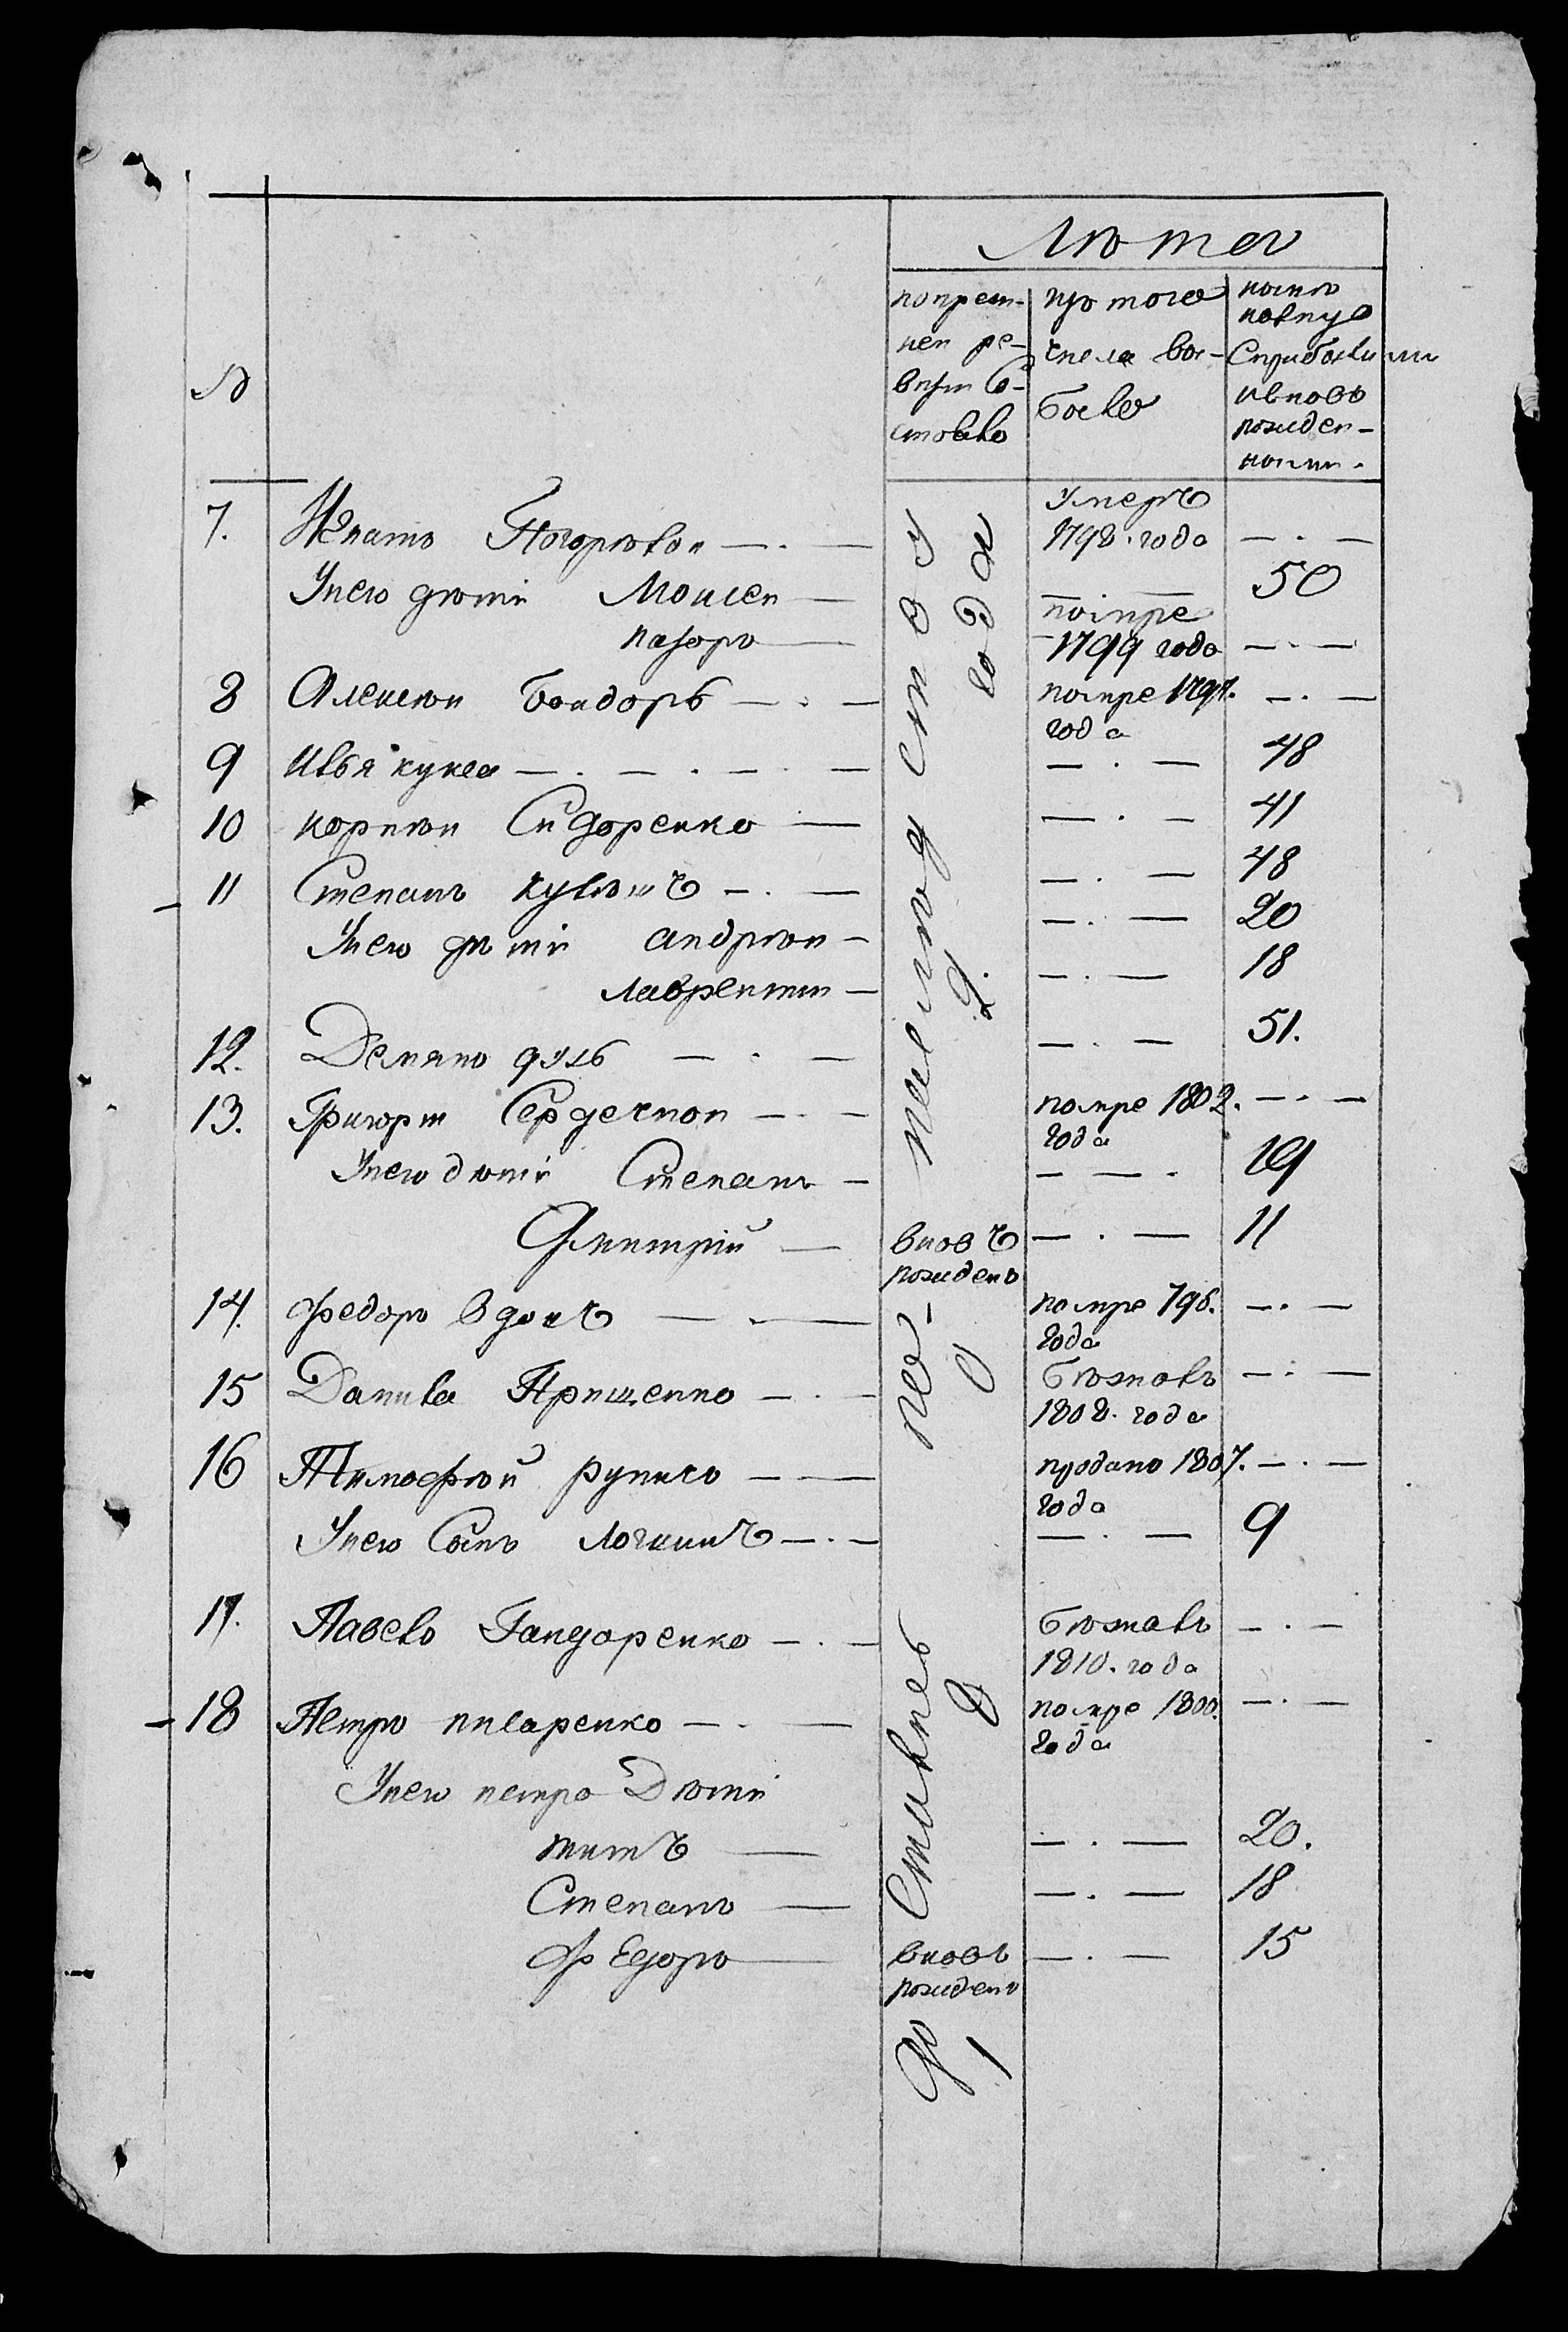 Лѣта
№
по преж-
ней ре-
визіи со-
стояло
изъ того
числа вы-
было
нынѣ
налицо
съ прибылыми
и вновь
рожден-
ными.
7. Игнатъ Погорѣлой — . —
умеръ
1798. года — . —
У нею дѣти Моисей — — — 50
назаръ — помре
1799 года — . —
8 Алексѣй Бондарь — . — помре 1797. — . —
года
9 Илья кукса — . — . — . — — . — 48
10 корнѣй Сидоренко — — . — 41
11 Степанъ кулѣшъ — . — — . — 48
У нею дѣти андрѣй — — . — 20
лаврентій — — . — 18
12. Демянъ — . — — . — 51.
13. Григорій Сердечной — . — помре 1802. — . —
года
У нею дѣти Степанъ — — — . 19
Дмитрій — вновь — . — 11
рожденъ
14. федоръ вдонъ — . — помре 798. — . —
года
15 Данила Прищенко — . — бѣжалъ — . —
1808. года
16 Тимофѣй рупичъ — — продано 1807. — . —
года
У нею Сынъ логинъ — . — — . — 9
17. Павелъ Гандоренко — . — бѣжалъ — . —
1810. года
18 Петро писаренко — . — помре 1800. — . —
года
У нею петра Дѣти
титъ — — . — 20.
Степанъ — — . — 18
федоръ — вновь — . — 15
рожденъ